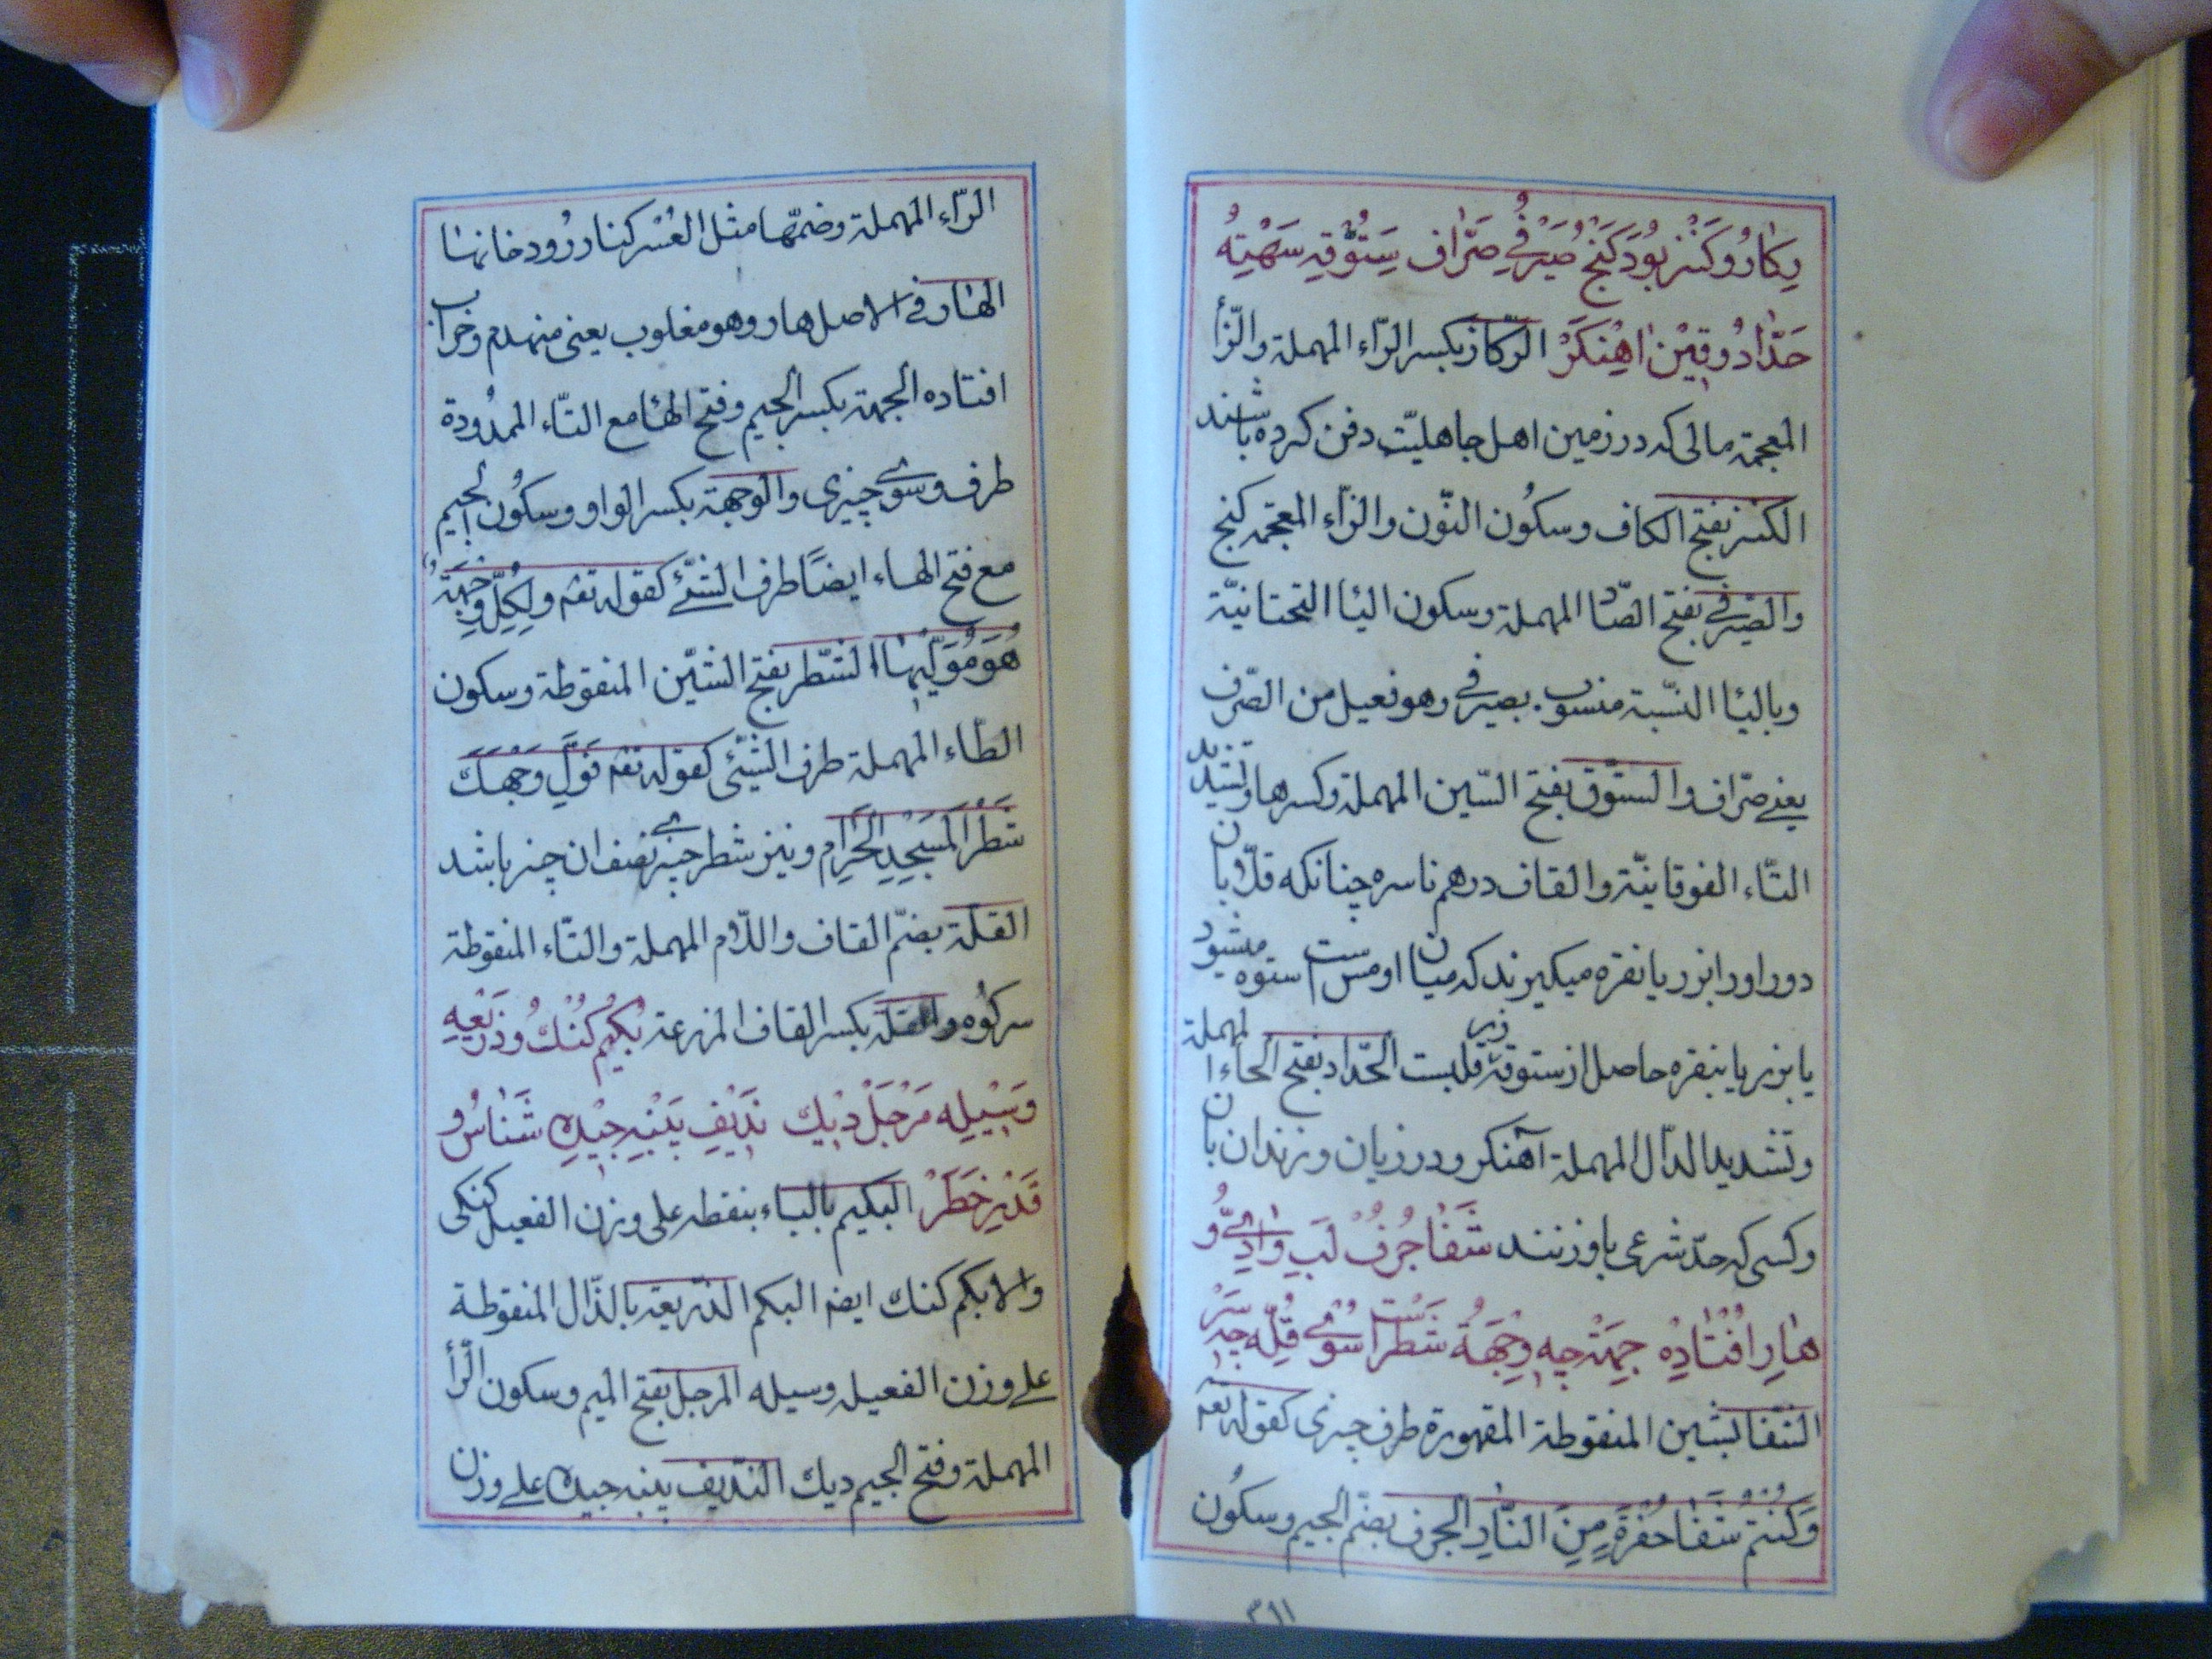 رِکٰازُ وکَنْز بُوَد کَنْجْ صَیْرَفِیُّ صَرّٰاف سَتُّوقِه سَهْتِهُ
حَدّٰادُ وقِیْنْ اٰهِنْکَرْ الرّکاز بکسر الرّاء المهملة والزّأ
المعجمة مالی که در زمین اهل جاهلیّت دفن کرده باشند
الکنز بفتح الکاف وسکُون النّون والزّاء المعجمه کنج
والصّیرفی بفتح الصّا المهملة وسکون الیٔا التحتانیّة
وبالیٔا النسّبة منسوب بصیرفی وهو فعیل من الصّرف
یعنی صرّاف والستّوق بفتح السّین المهملة وکسرها وتشدید
التّاء الفوقانیّة والقاف درهم ناسره چنانکه قلّابان
دور اورا بزر یا نقره میکیرند که میان او مس است ستوه میشود
یا بزر یا بنقره حاصل از ستوقة زر قلبست الحّداد بفتح الحاء المهملة
وتشدید الدّال المهملة آهنکر ودرزیان وزندان بان
وکسی که حدّ شرعی باو زنند شَفٰا جُرُفْ لَبِ وٰادِیُّ وُ
هٰارِ اُفْتٰادِهْ جِهَتْ چِه وِجْهَةُ شَطْرْ اسْت سُوْیُ قُلّه چِه سَرْ
الشّفا بشین المنقوطة المقهورة طرف چیزی کقوله تعه
وَکُنْتُمْ شَفٰا حُفْرَةٍ مِنَ النّٰارِ الجرف بضمّ الجیم وسکُون
٣١١
الرّاء المهملة وضمّها مثل العُسْر کنار رُود خانها
الهار فی الاصل هار وهو مغلوب یعنی منهدم وخراب
افتاده الجهة بکسر الجیم وفتح الهٔا مع التّاء الممدُودة
طرف وسوی چیزی والوجهة بکسر الواو وسکُون الجیم
مع فتح الهاء ایضًا طرف الشّیٔ کقوله تعه ولِکُلٍّ وِجْهَةٌ
هُوَ مُوَلّیٖهٰا الشّطر بفتح الشّین المنقوطة وسکون
الطّاء المهملة طرف الشّیٔ کقوله تعه فَوَلِّ وَجْهَكَ
شَطْرَ الْمَسْجِدِ الْحَرٰامِ ونیز شطر چیزی نصف ان چیز باشد
القلّة بضمّ القاف واللّام المهملة والتّاء المنقوطة
سرکوُه والقلّة بکسر القاف المزرعة بُکیٖم کُنْكُ وذَریٖعِه
وَسِیْلِه مَرْجَلْ دیٖك نَدیٖفِ پَنْبِه چیٖدِه شَنٰاسْ وُ
قَدْرِ خَطَرْ البکیم بالباء بنقطه علی وزن الفعیل کنکی
والابکم کنك ایضه البکم الذّریعة بالذّال المنقوطة
علی وزن الفعیله وسیله المرجل بفتح المیم وسکون الرّأ
المهملة وفتح الجیم دیك النّدیف پنبه چیده علی وزن